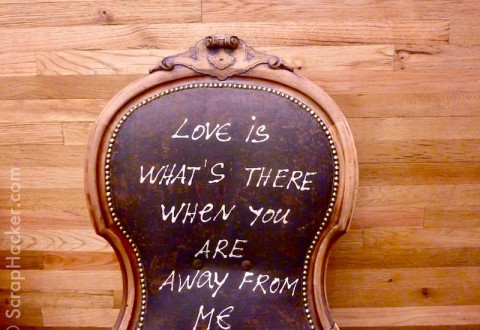 LOVE is
WHAT'S THERE
WHEN YOU
ARE
AWAY FROM
ME
© ScrapHacker.com